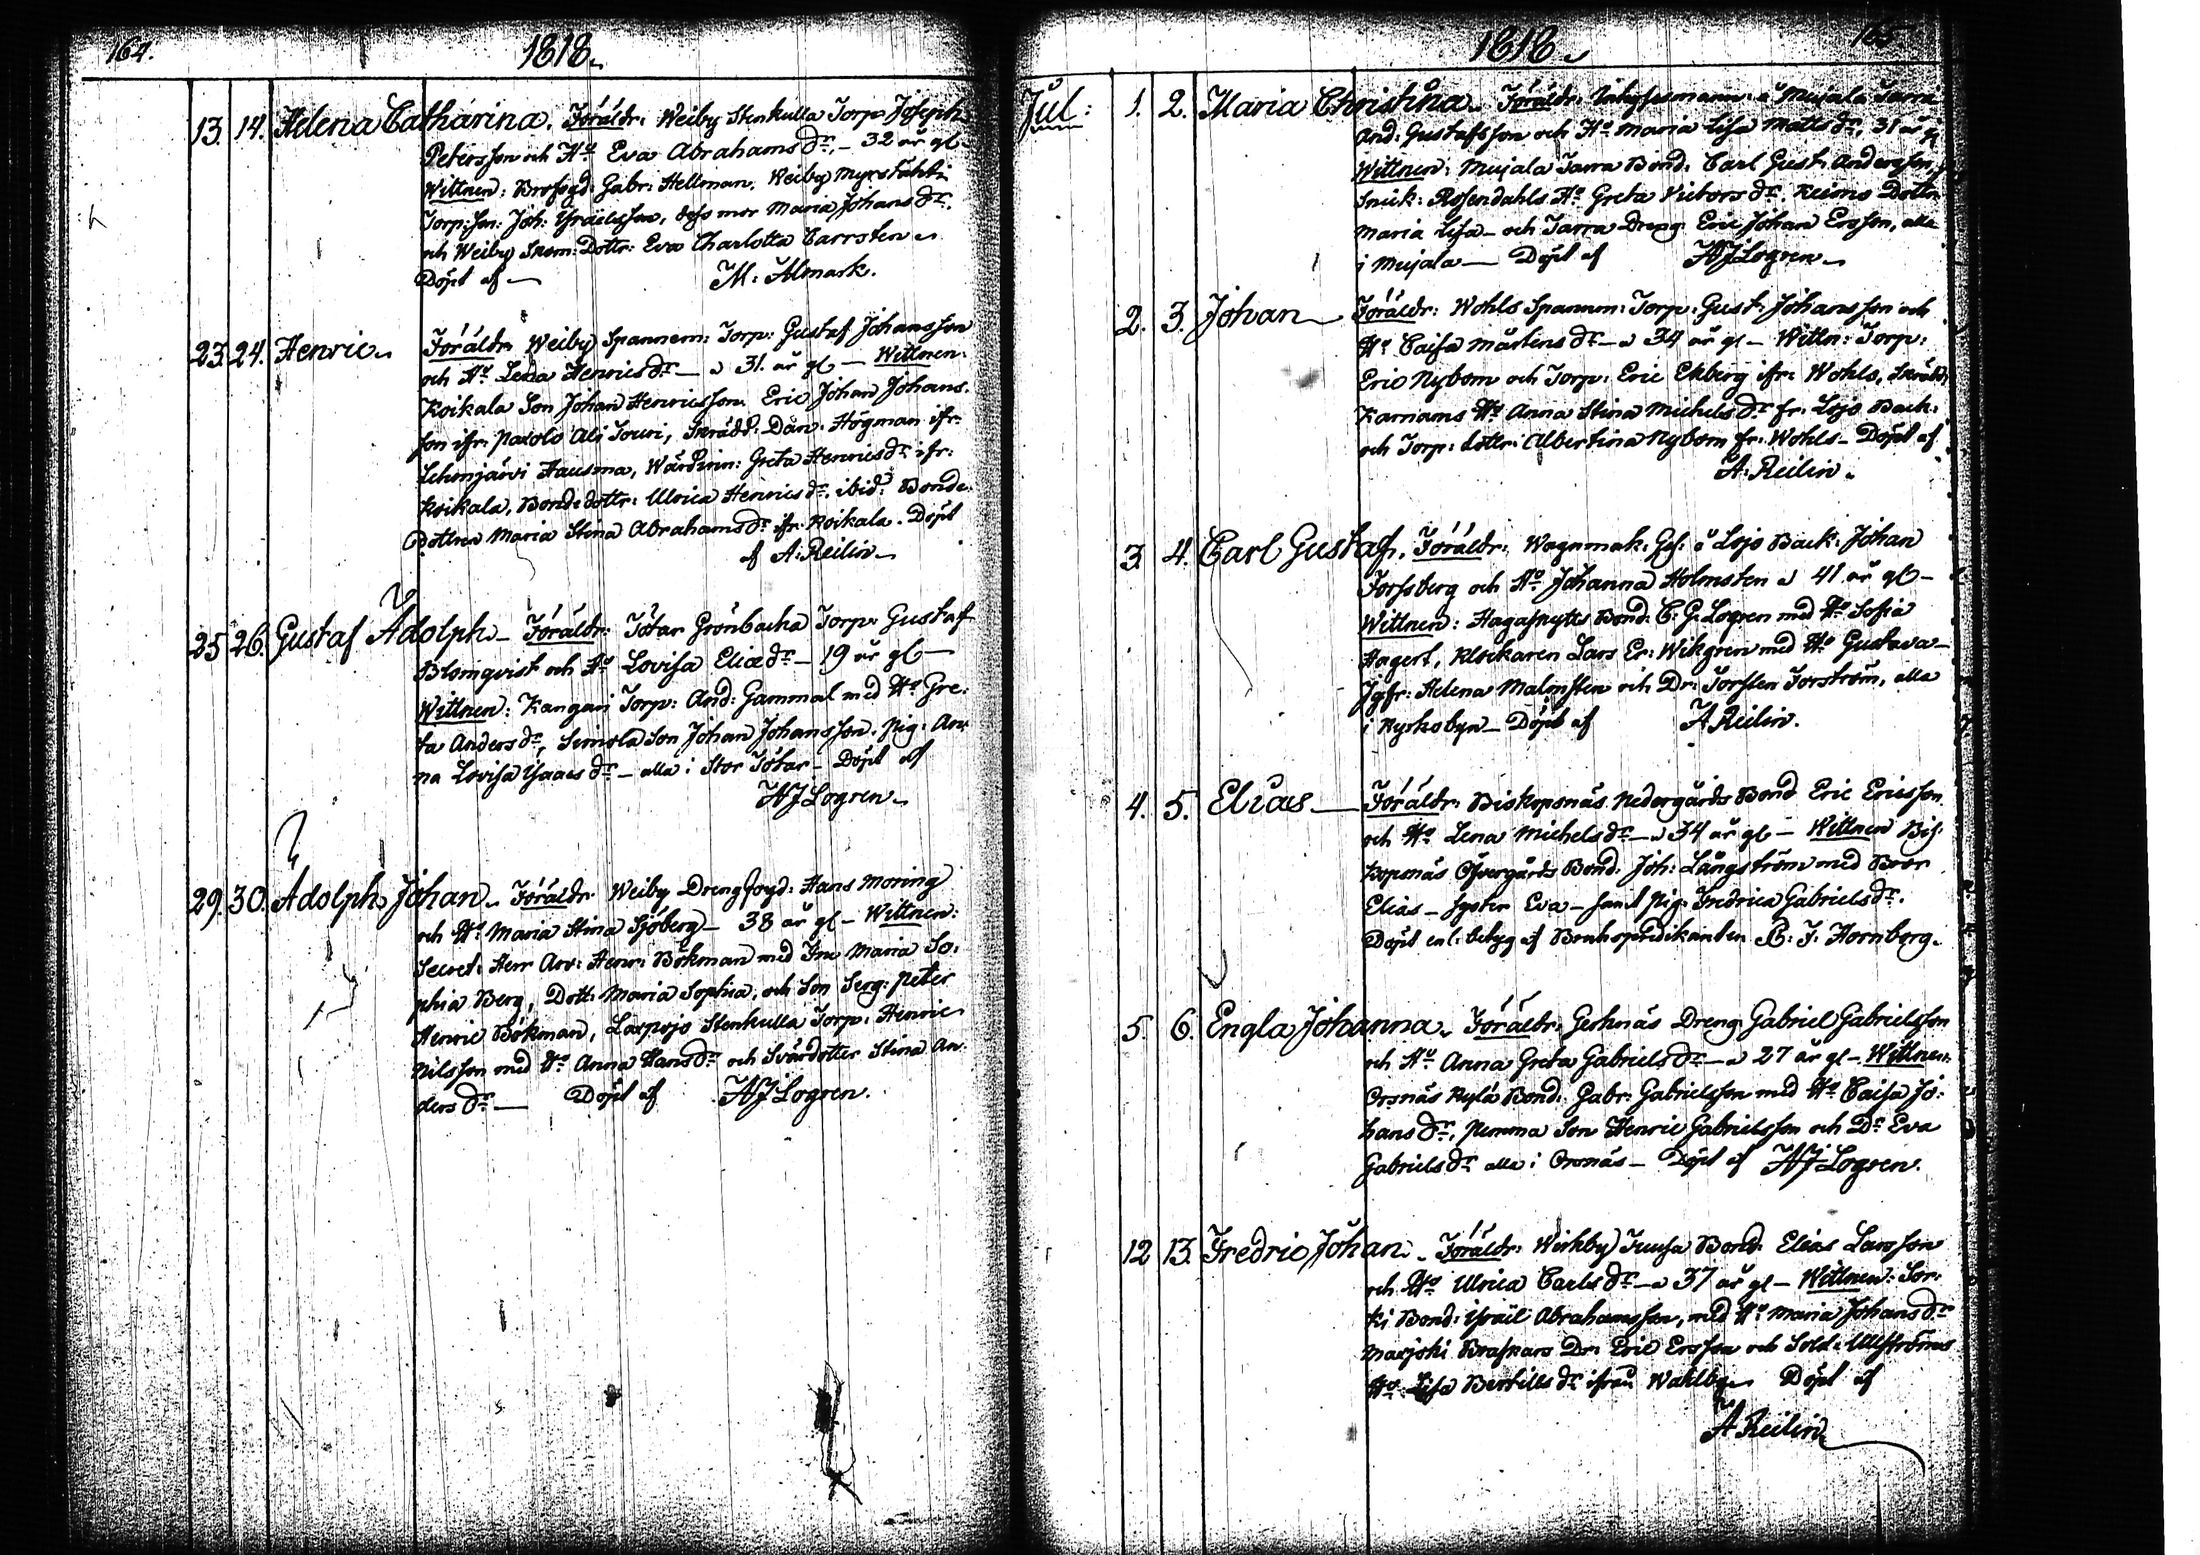 164.
1818.
13. 14. Helena Catharina. Föräldr: Weiby Stenkulla Torp: Joseph
Petersson och Ho Eva Abrahams dr, – 32 år gl.
Wittnen: Brofogd: Gabr: Hellman, Weiby Myrstukt:
Torp: son: Joh: Israëlsson, dess mor Maria Johans dr.
och Weiby Skom: Dottr: Eva Charlotta Carrsten
Döpt af — M: Almark.
23. 24. Henric Föräldr: Weiby Spannem: Torp: Gustaf Johansson
och Ho Lena Henrics dr – 31. år gl – Wittnen:
Koikala Son Johan Henricsson. Eric Johan Johans:
son ifr: PaloLo Ali Jouri, Skrädd: Dan: Högman ifr:
Lehmjärvi Hausma, Wärdinn: Greta Henrics dr ifr:
Koikala, Bondedottr: Ulrica Henrics dr. ibid: Bonde:
dottren Maria Stina Abrahams dr ifr: Koikala. Döpt
af A: Reilin
25 26. Gustaf Adolph – Föräldr: Tötar Grönbacka Torp: Gustaf
Blomqvist och Ho Lovisa Eliæ dr – 19 år gl –
Wittnen: Kangari Torp: And: Gammal med Ho Gre:
ta Anders dr, Simola Son Johan Johansson. Pig: An:
na Lovisa Isaacs dr – alla i Stor Tötar – Döpt af
HJLogren
29. 30. Adolph Johan. Föräldr Weiby Drengfogd: Hans Moring
och Ho Maria Stina Sjöberg – 38 år gl – Wittnen:
Secret: Herr Arv: Henr: Bökman med Fru Maria So:
phia Berg, Dott: Maria Sophia, och Son Serg: Peter
Henric Bökman, Laxpojo Stenkulla Torp: Henric
Nilsson med Ho Anna Hans dr och Svärdotter Stina An:
ders dr — Döpt af HJLogren.
165
1818
Jul: 1. 2. Maria Christina Föräldr: å Mujala Jarra
And: Gustafsson och Ho Maria Lisa Matts dr, 31 år gl
Wittnen: Mujala Jarra Bond: Carl Gust: Andersson,
Snick: Rosendahls Ho Greta Victors dr. Reimo Dottr:
Maria Lisa – och Jarra Dreng Eric Johan Ersson, alla
i Mujala — Döpt af HJLogren
2. 3. Johan Föräldr: Wohls Spannm: Torp: Gust: Johansson och
Ho Caisa Mårtens dr – 34 år gl – Wittn: Torp:
Eric Nybom och Torp: Eric Ekberg ifr: Wohls, Skrädd:
Karnams Ho Anna Stina Michels dr fr: Lojo Back:
och Torp: dottr: Albertina Nybom fr: Wohls – Döpt af
A: Reilin.
3. 4. Carl Gustaf. Föräldr: Wagnmak: Ges: å Lojo Back: Johan
Forssberg och Ho Johanna Holmsten 41 år gl –
Wittnen: Hagaskytts Bond: C: G: Logren med Ho Sofia
Hagert, Klockaren Lars Er: Wikgren med Ho Gustava –
Jgfr: Helena Malmsten och Dr: Torsten Forström, alla
i Kyrkobyn – Döpt af A Reilin.
4. 5. Elias — Föräldr: Biskopsnäs Nedergårds Bond Eric Ericsson
och Ho Lena Michels dr – 34 år gl – Wittnen Bis:
kopsnäs Öfvergårds Bond: Joh: Långström med Bror
Elias – syster Eva – samt Pig: Fredrica Gabriels dr.
Döpt enl: betyg af Brukspredikanten B: J: Hornborg.
5. 6. Engla Johanna. Föräldr: Gerknäs Dreng Gabriel Gabrielsson
och Ho Anna Greta Gabriels dr – 27 år gl – Wittnen:
Orsnäs Nylä Bond: Gabr: Gabrielsson med Ho Caisa Jo:
hans dr, Pemma Son Henric Gabrielsson och Dr Eva
Gabriels dr alla i Orsnäs – Döpt af HJLogren.
12 13. Fredric Johan. Föräldr: Wirkby Juusa Bond: Elias Larsson
och Ho Ulrica Carls dr – 37 år gl – Wittnen: Sor:
ki Bond: Israël Abrahamsson, med Ho Maria Johans dr
Marjoki Braskars Dr: Eric Ersson och Sold: Ullströms
Ho Lisa Bertills dr ifrån Wahlby. Döpt af
A Reilin